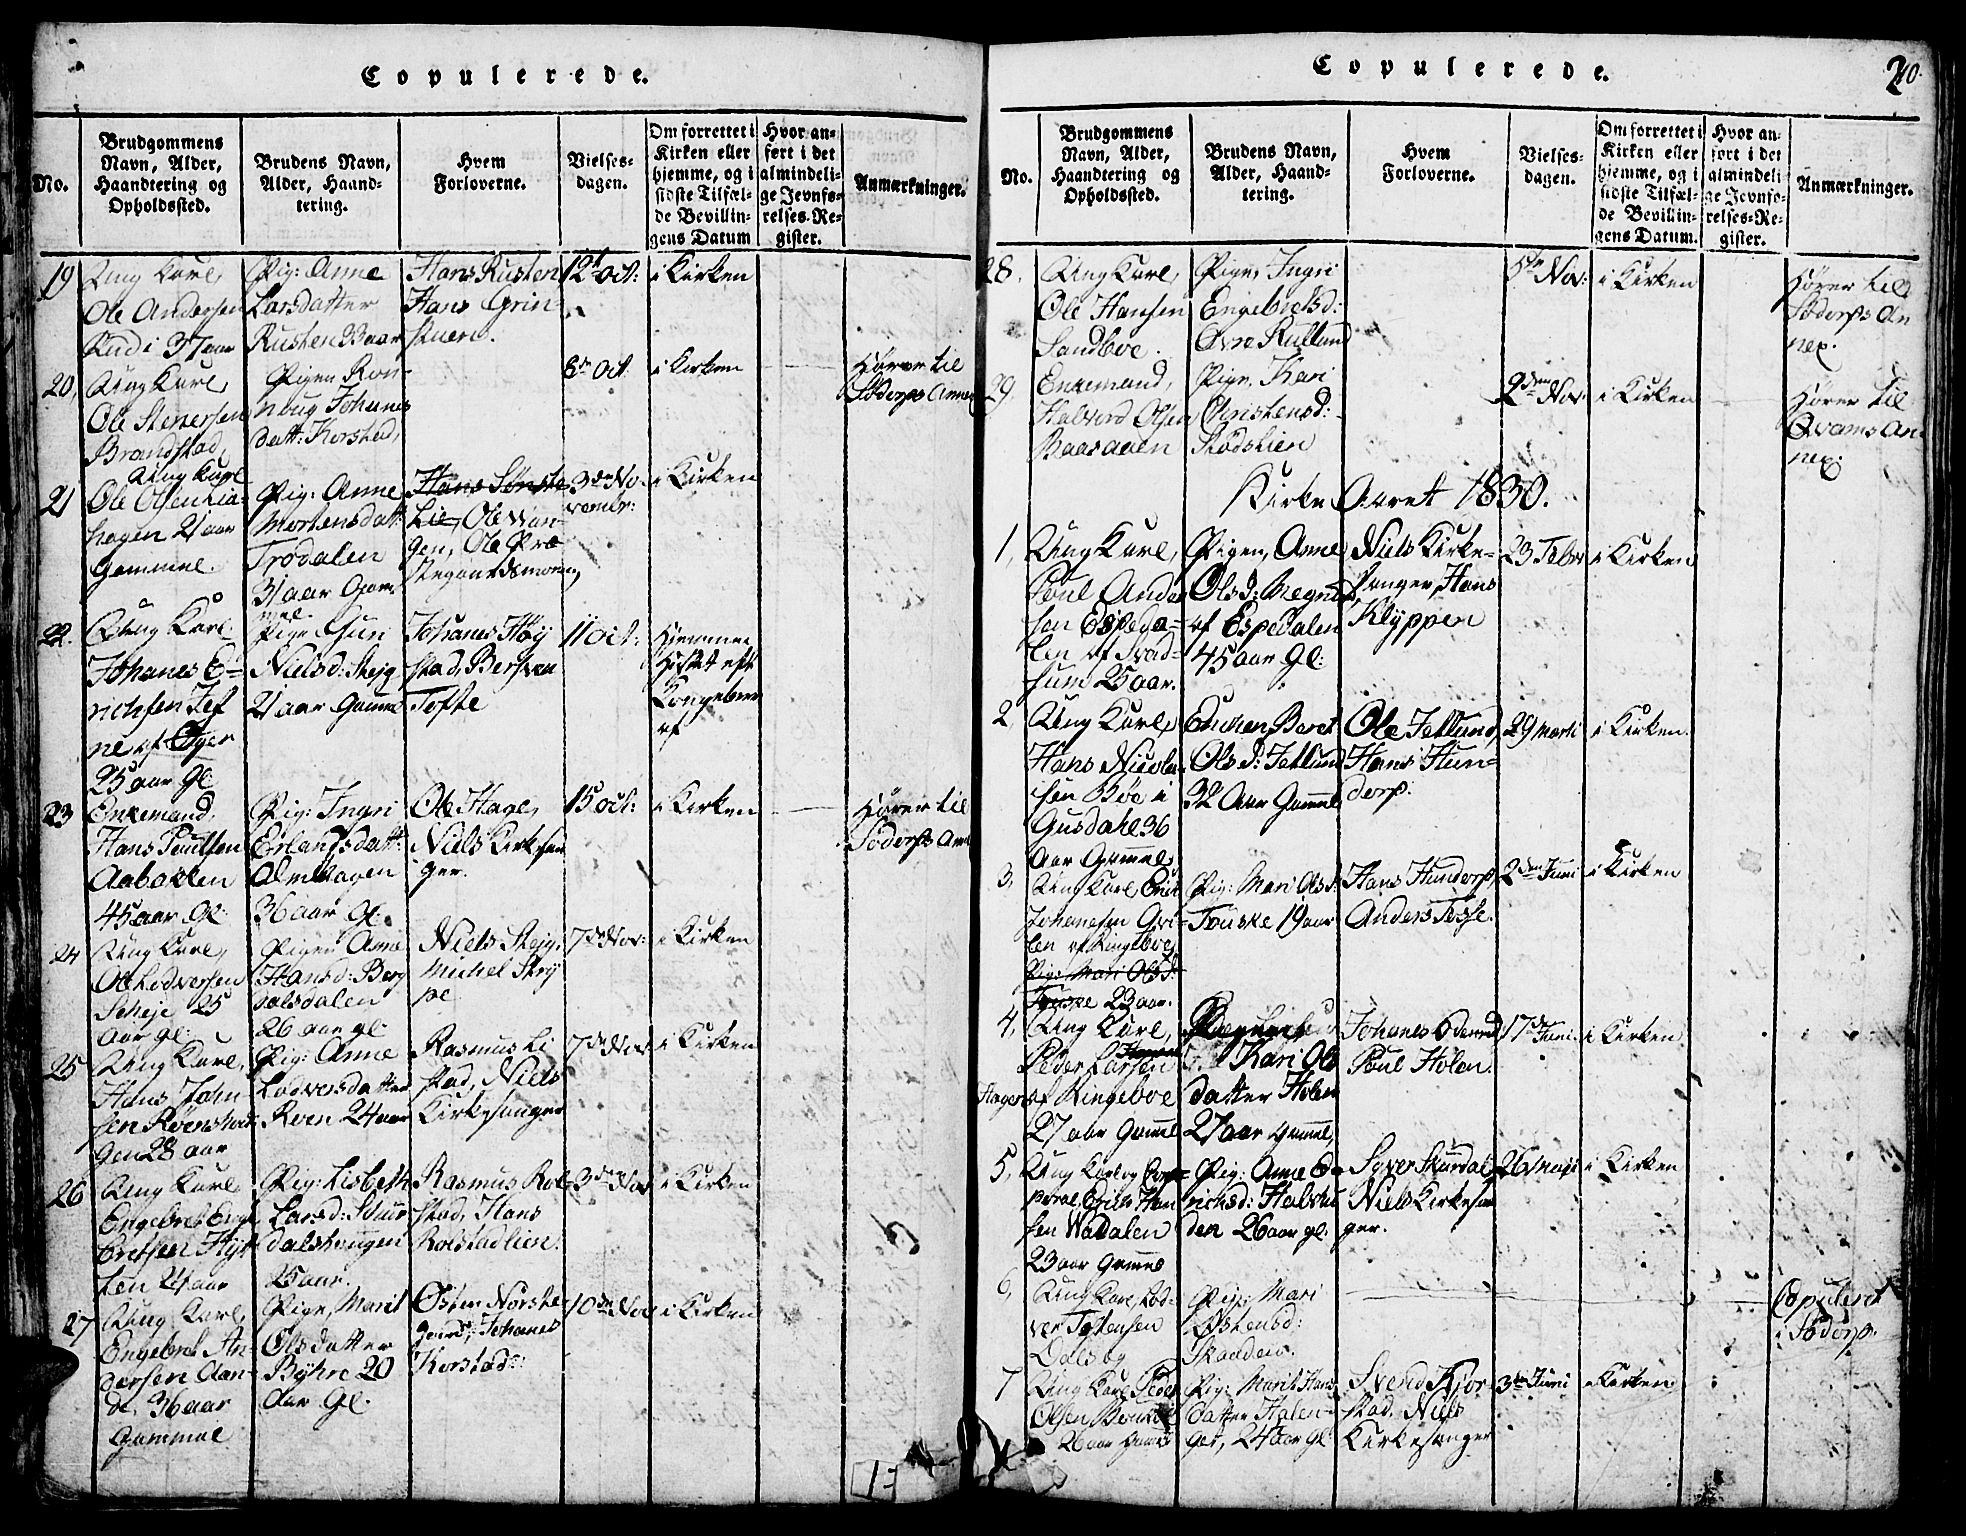 Copulerede.
No.
Brudgommens
Navn, Alder,
Haandtering og
Opholdssted.
Brudens Navn,
Alder, Haand-
tering.
Hvem
Forloverne.
Vielses-
dagen.
Om forrettet i
Kirken eller
hjemme, og i
sidste Tilfæl-
de Bevillin-
gens Datum
Hvor an-
ført i det
almindeli-
ge Jevnfø-
relses-Re-
gister.
Anmærkninger.
19
Ung Karl,
Ole Andersen
Rudi 37 aar
Pig: Anne
Larsdatter
Rusten 33 aar
Hans Rusten
Hans Grin
stuen.
12t oct:
i Kirken
20,
Ung Karl,
Ole Stenersen
Brandstad,
Pigen Ron-
noug Johanes
datt: Korstad,
8de oct.
i Kirken
Hører til
Södorps Annex
21
Ung Karl
Ole Olsen Lia-
hagen 21 aar
Gammel.
Pig: Anne
Mortensdatt:
Trødalen
31 aar Gam-
mel
Hans Sønste
Lie, Ole Van-
gen, Ole Præ
stegaardsmoen,
3de No-
vembr:
i Kirken
22.
Ung Karl
Johanes E-
richsen Tof
ne af
25 aar Gl
Pige Guri
Nielsd: Steig
21 aar Gamel
Johanes Høy
stad, Bersven
Tofte
11 oct:
Hjemme i
Huset eft
Kongebrev
af
23
Enkemand,
Hans Poulsen
Aabakken
45 aar Gl:
Pig: Ingri
Erlandsdatt:
Almhagen
36 aar Gl.
Ole Hage,
Niels Kirkesan
ger.
15 oct:
i Kirken
Hører til
Södorps Ann
24
Ung Karl,
Ole Lodversen
25
Aar gl:
Pigen Anne
Hansd: Berg
dalsdalen
26 aar gl:
Niels Steig,
Michel Stry
pe
7de Nov:
i Kirken
25
Ung Karl,
Hans John
sen Røenshau
gen 28 aar
Pig: Anne
Lodversdatter
Roen 24 aar
Rasmus Li
stad, Niels
Kirkesanger
7de Nov
i Kirken
26
Ung Karl,
Engebret Enge
bretsen Hyt
ten 21 aar
Pig: Lisbeth
Larsd: Skur
dalshougen
25 aar.
Rasmus Rol-
stad, Hans
Rolstadlien.
3de Nov
i Kirken
27
Ung Karl,
Engebret An
dersen Aan
de, 36 aar
Gammel
Pige, Marit
Olsdatter
Byhre 20
Aar Gl.
Østen Nørste-
gaard, Johanes
Korstad:
10de Nov
i Kirken
Copulerede.
20.
No.
Brudgommens
Navn, Alder,
Haandtering og
Opholdssted.
Brudens Navn,
Alder, Haand-
tering.
Hvem
Forloverne.
Vielses-
dagen.
Om forrettet i
Kirken eller
hjemme, og i
sidste Tilfæl-
de Bevillin-
gens Datum.
Hvor an-
ført i det
almindeli-
ge Jevnfø-
relses-Re-
gister.
Anmærkninger.
28.
Ung Karl,
Ole Hansen
Sandboe.
Pige, Ingri
Engebretsd:
Øvre Rullund
5te Nov:
i Kirken
Hører til
Södorps An
nex.
29
Enkemand,
Halvord Olsen
Baaraaen
Pige, Kari
Christensd:
Stødslien
9den Nov:
i Kirken
Hører til
Qvams An-
nex.
Kirke Aaret 1830.
1,
Ung Karl,
Poul Ander
sen Espeda-
len af Svad-
sum 25 aar.
Pigen, Anne
Olsd:
af Espedalen
45 aar Gl:
Niels Kirke-
sanger, Hans
Klyppen
23 Febr
i Kirken
2,
Ung Karl,
Hans Nicola-
isen Bøe i
Gusdahl 36
Aar Gammel
Enken Beret
Olsd: Jetlund
32 Aar Gammel
Ole Jetlund,
Hans Hun-
dorp.
29 Marti
i Kirken.
3,
Ung Karl Erik
Johanesen Qvi-
len af Ringeboe,
Pig: Mari Olsd:
Fouske 23 aar.
Pig: Mari Olsd:
Fouske 19 aar
Hans Hundorp,
Anders Fosse.
2den Juni
i Kirken
4,
Ung Karl,
Peder Larsen
Hagen af Ringeboe
27 aar Gamel
Kari Ols
datter Holen
27 aar Gamel,
Johanes Oderud
Poul Holen.
17de Juni.
i Kirken
5,
Ung Karl og Cor-
poral Erich Han
sen Wadalen
23 aar Gamel
Pig: Anne E-
richsd:
den 26 aar gl.
Syver Skurdal
Niels Kirkesan
ger.
26 Maji
i Kirken
6,
Ung Karl, Lod-
ver Tostensen
Dalsög
Pig: Mari
Østensd:
Skaaden.
Copuleret
i Södorp.
7
Ung Karl Peder
Olsen
26 aar Gamel
Pig: Marit Hans
datter Holen-
get, 24 aar gl
Svend Kjor
stad, Niels
Kirkesanger
3de Juni
i Kirken